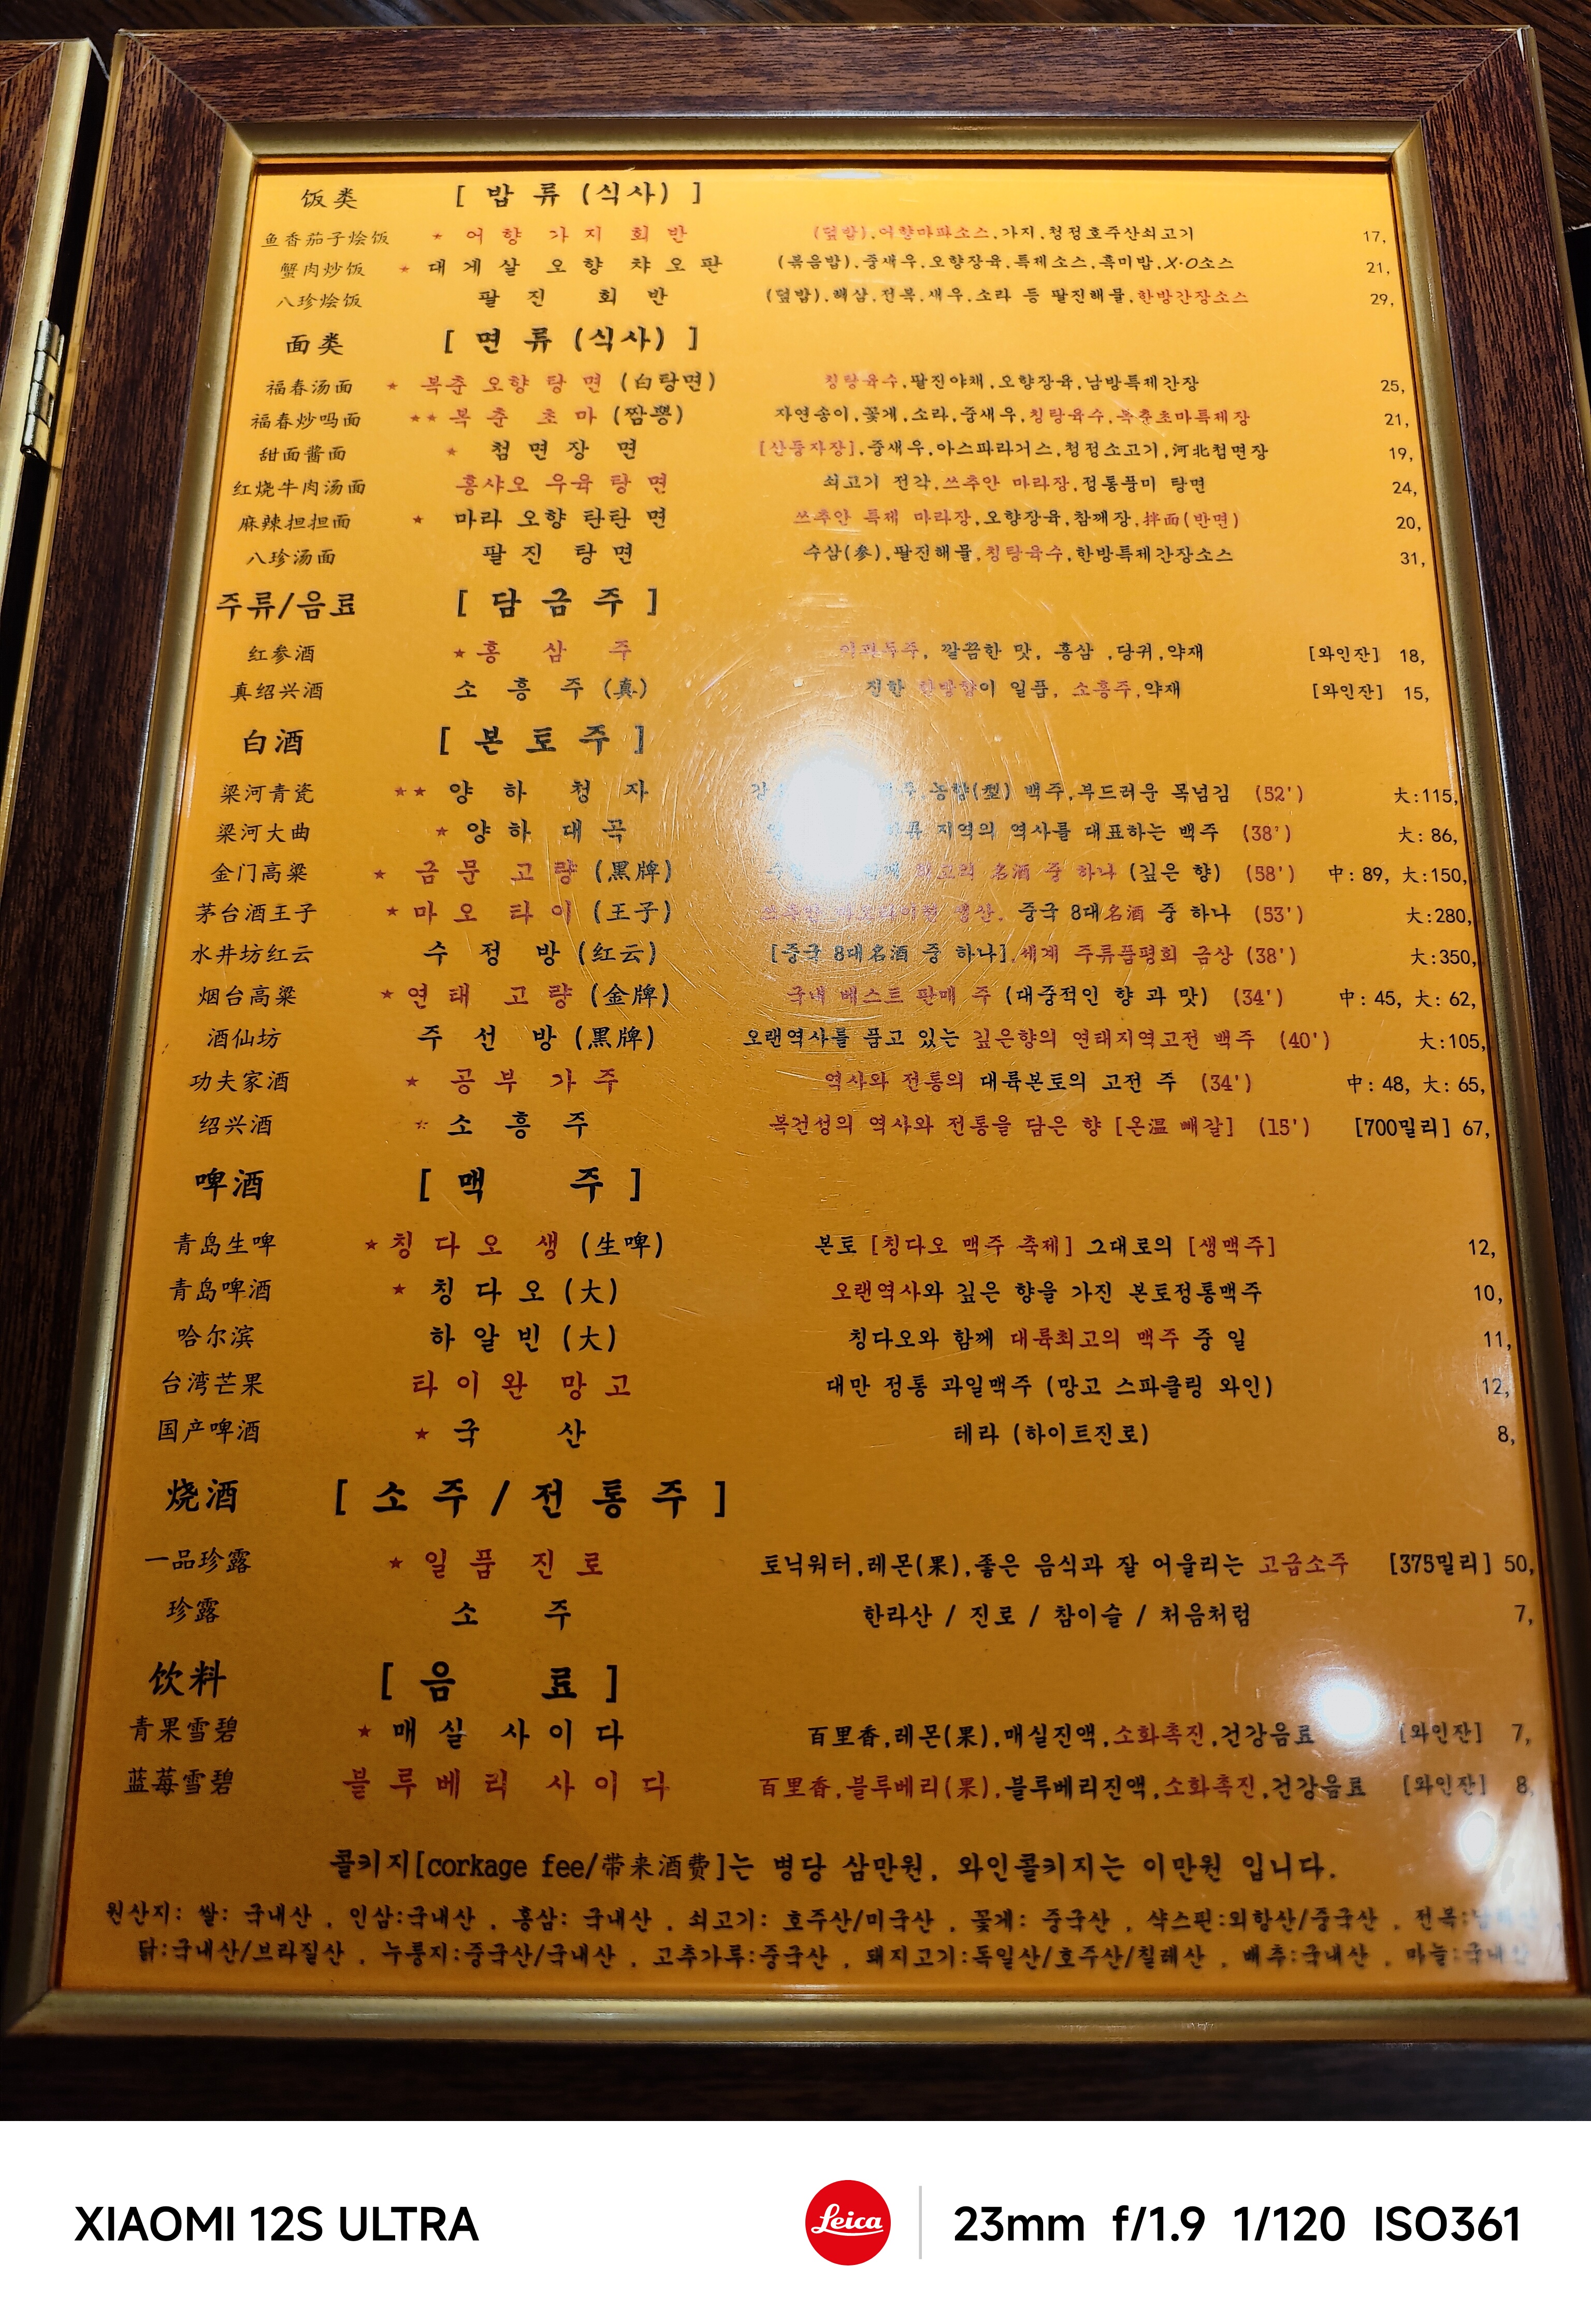 饭类 [ 밥 류 (식사) ]
鱼香茄子烩饭 ★ 어 향 가 지 회 반 (덮밥),어향마파소스,가지,청정호주산쇠고기 17,
蟹肉炒饭 ★ 대 게 살 오 향 챠 오 판 (볶음밥),중새우,오향장육,특제소스,흑미밥,X·O소스 21,
八珍烩饭 팔 진 회 반 (덮밥),해삼,전복,새우,소라 등 팔진해물,한방간장소스 29,
面类 [ 면 류 (식사) ]
福春汤面 ★ 복춘 오향 탕 면 (白탕면) 칭탕육수,팔진야채,오향장육,남방특제간장 25,
福春炒吗面 ★★ 복 춘 초 마 (짬뽕) 자연송이,꽃게,소라,중새우,칭탕육수,복춘초마특제장 21,
甜面酱面 ★ 첨 면 장 면 [산동자장],중새우,아스파라거스,청정소고기,河北첨면장 19,
红烧牛肉汤面 홍샤오 우육 탕 면 쇠고기 전각,쓰추안 마라장,정통풍미 탕면 24,
麻辣担担面 ★ 마라 오향 탄탄 면 쓰추안 특제 마라장,오향장육,참깨장,拌面(반면) 20,
八珍汤面 팔 진 탕 면 수삼(参),팔진해물,칭탕육수,한방특제간장소스 31,
주류/음료 [ 담 금 주 ]
红参酒 ★ 홍 삼 주 이과두주, 깔끔한 맛, 홍삼 ,당귀,약재 [와인잔] 18,
真绍兴酒 소 흥 주 (真) 진한 한방향이 일품, 소흥주,약재 [와인잔] 15,
白酒 [ 본 토 주 ]
梁河青瓷 ★★ 양 하 청 자 농향(型) 백주,부드러운 목넘김 (52') 大:115,
梁河大曲 ★ 양 하 대 곡 지역의 역사를 대표하는 백주 (38') 大: 86,
金门高粱 ★ 금 문 고 량 (黑牌) 최고의 名酒 중 하나 (깊은 향) (58') 中: 89, 大:150,
茅台酒王子 ★ 마 오 타 이 (王子) 생산. 중국 8대名酒 중 하나 (53') 大:280,
水井坊红云 수 정 방 (红云) [중국 8대名酒 중 하나],세계 주류품평회 금상 (38') 大:350,
烟台高粱 ★ 연 태 고 량 (金牌) 국내 베스트 판매 주 (대중적인 향 과 맛) (34') 中: 45, 大: 62,
酒仙坊 주 선 방 (黑牌) 오랜역사를 품고 있는 깊은향의 연태지역고전 백주 (40') 大:105,
功夫家酒 ★ 공 부 가 주 역사와 전통의 대륙본토의 고전 주 (34') 中: 48, 大: 65,
绍兴酒 ★ 소 흥 주 복건성의 역사와 전통을 담은 향 [온温 빼갈] (15') [700밀리] 67,
啤酒 [ 맥 주 ]
青岛生啤 ★ 칭 다 오 생 (生啤) 본토 [칭다오 맥주 축제] 그대로의 [생맥주] 12,
青岛啤酒 ★ 칭 다 오 (大) 오랜역사와 깊은 향을 가진 본토정통맥주 10,
哈尔滨 하 얼 빈 (大) 칭다오와 함께 대륙최고의 맥주 중 일 11,
台湾芒果 타 이 완 망 고 대만 정통 과일맥주 (망고 스파클링 와인) 12,
国产啤酒 ★ 국 산 테라 (하이트진로) 8,
烧酒 [ 소 주 / 전 통 주 ]
一品珍露 ★ 일 품 진 로 토닉워터,레몬(果),좋은 음식과 잘 어울리는 고급소주 [375밀리] 50,
珍露 소 주 한라산 / 진로 / 참이슬 / 처음처럼 7,
饮料 [ 음 료 ]
青果雪碧 ★ 매 실 사 이 다 百里香,레몬(果),매실진액,소화촉진,건강음료 [와인잔] 7,
蓝莓雪碧 블 루 베 리 사 이 다 百里香,블루베리(果),블루베리진액,소화촉진,건강음료 [와인잔] 8,
콜키지[corkage fee/带来酒费]는 병당 삼만원, 와인콜키지는 이만원 입니다.
원산지: 쌀: 국내산 , 인삼:국내산 , 홍삼: 국내산 , 쇠고기: 호주산/미국산 , 꽃게: 중국산 , 샥스핀:외항산/중국산 , 전복:
닭:국내산/브라질산 , 누룽지:중국산/국내산 , 고추가루:중국산 , 돼지고기:독일산/호주산/칠레산 , 배추:국내산 , 마늘:국내산
XIAOMI 12S ULTRA Leica 23mm f/1.9 1/120 ISO361